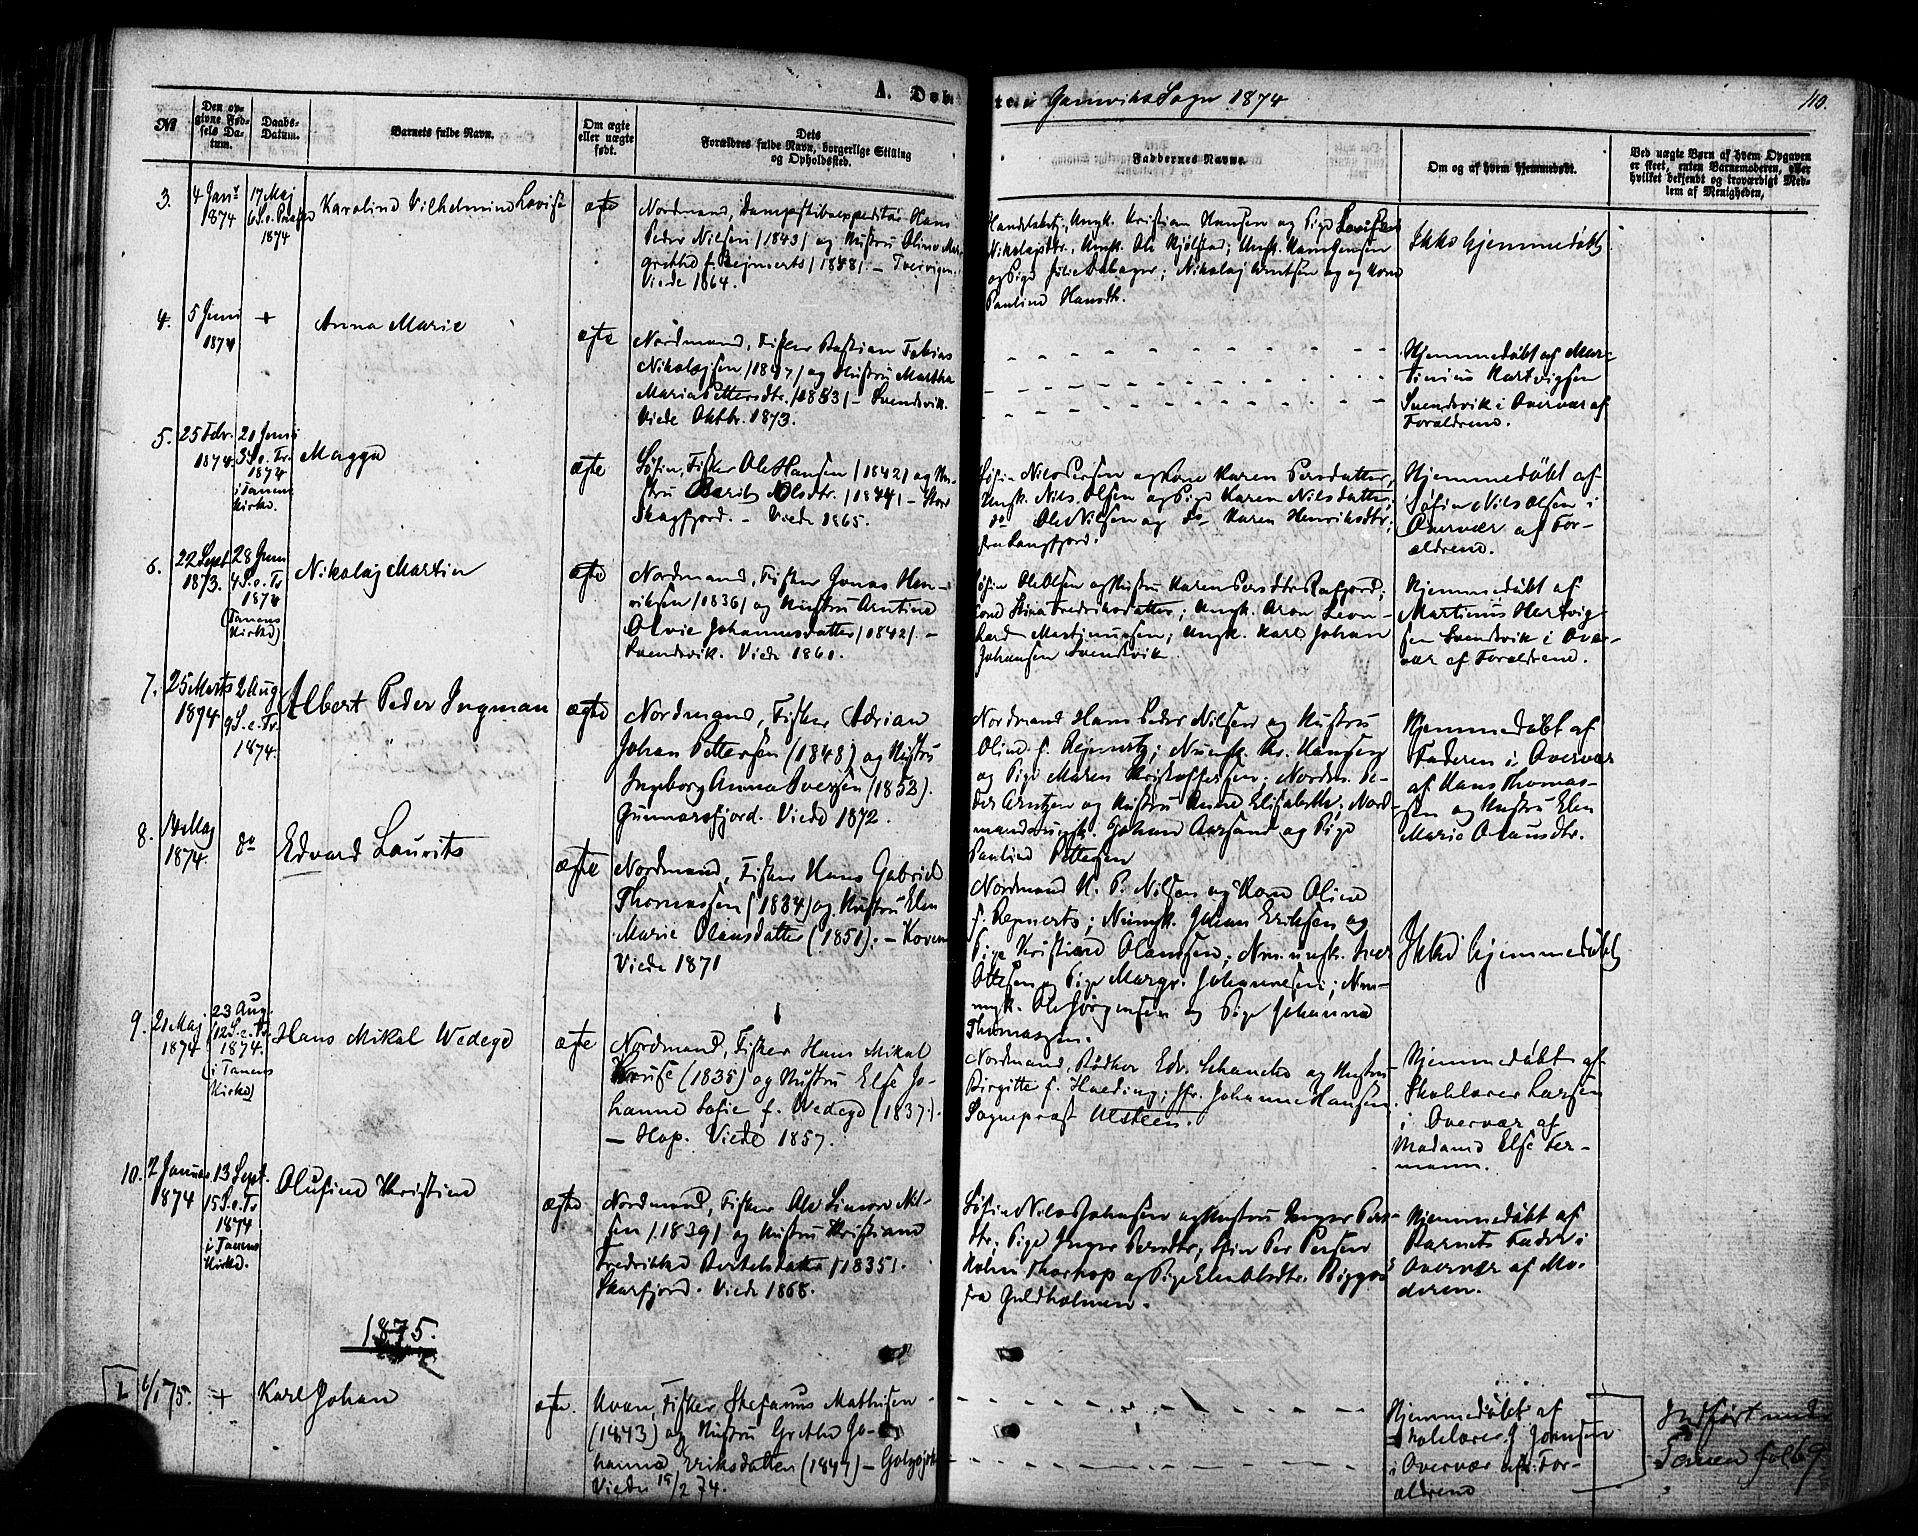 A. Døbte i Gamviks Sogn 1874
110.
No
Den opgivne Fødsels Datum.
Daabs-Datum.
Barnets fulde Navn.
Om ægte eller uægte født.
Dets Forældres fulde Navn, borgerlige Stilling og Opholdssted.
Faddernes Navne.
Om og af hvem hjemmedøbt.
Ved uægte Børn af hvem Opgaven er skeet, enten Barnemoderen, eller hvilket bekjendt og troværdigt Medlem af Menigheden.
3.
4 Janr
1874
17 Maj
1874
Karoline Vilhelmine Lovise
ægte
Nordmand, Dampskibsexpeditør Hans
Peder Nilsen /1843/ og Hustru Oline Mar-
grethe f. Rejnerts /1848/ –
Viede 1864.
Ungk. Kristian Hansen og Pige
Nikolajsdtr., Ungk. Ole
og Pige Nikolaj Arntsen og
Pauline Hansdtr.
Ikke hjemmedøbt
4.
5 Juni
1874
+
Anna Marie
ægte
Nordmand, Fisker Bastian Tobias
Nikolajsen /1847/ og Hustru Martha
Maria Pettersdtr. /1853/ – Svendsvik.
Viede Oktbr. 1873.
Hjemmedøbt af Mar-
tinius Hartvigsen
Svendsvik i Overvær af
Forældrene.
5.
25 Febr.
1874.
21 Juni
3 S. e. Tr.
1874
i Tanens
Kirke.
Magga
ægte
Søfin, Fisker Ole Hansen /1842/ og Hu-
stru Berit Olsdtr. /1844/ – Stor
Skogfjord. – Viede 1865.
Søfin Nils Persen og Kone Karen Persdatter,
Ungk. Nils Olsen og Pige Karen Nilsdatter;
do Ole Nilsen og do Karen Henriksdtr.;
fra Langfjord.
Hjemmedøbt af
Søfin Nils Olsen i
Overvær af For-
ældrene.
6.
22 Sept
1873.
28 Juni
4 S. e. Tr.
1874
(Tanens
Kirke)
Nikolaj Martin
ægte
Nordmand, Fisker Jonas Hen-
riksen /1836/ og Hustru Arntine
Olvie Johannesdatter /1842/. –
Svendsvik. Viede 1861.
Søfin Ole Olsen og Hustru Karen Persdtr.
Kone Stina Fredriksdatter; Ungk. Aron Leon-
hard Martinussen; Ungk. Karl Johan
Johansen Svendsvik.
Hjemmedøbt af
Martinus Hartvig-
sen Svendsvik i Over-
vær af Forældrene.
7.
25 Marts
1874
2 Aug
9 S. e. Tr.
1874.
Albert Peder Ingman
ægte
Nordmand, Fisker Adrian
Johan Pettersen (1848) og Hustru
Ingeborg Anna Iversen (1852).
Gunnarsfjord. Viede 1872.
Nordmand Hans Peder Nilsen og Hustru
Oline f. Rejnertz; Nungk. Kr. Hansen
og Pige Maren Kristoffersen; Nordm. Pe-
der Arntzen og Hustru Anne Elisabeth; Nord-
mandsungk. Johan Aarsand og Pige
Pauline Pettersen
Hjemmedøbt af
Faderen i Overvær
af Hans Thomas-
sen og Hustru Elen
Marie Olausdtr.
8.
14 Maj
1874.
do
Edvard Laurits
ægte
Nordmand, Fisker Hans Gabriel
Thomassen (1834) og Hustru Elen
Marie Olausdatter (1851). –
Viede 1871
Nordmand H. P. Nilsen og Kone Oline
f. Rejnerts; Nungk. Johan Eriksen og
Pige Kristiane Olaussen; Nm. ungk. Iver
Ottesen og Pige Margr. Johannesen; Nm-
ungk. Ole Jørgensen og Pige Johanna
Thomassen.
Ikke hjemmedøbt
9.
21 Maj
1874
23 Aug.
12 S. e. Tr.
1874.
(i Tanens
Kirke)
Hans Mikal Wedege
ægte
Nordmand, Fisker Hans Mikal
Kruse (1835) og Hustru Else Jo-
hanne Sofie f. Wedege (1837).
– Hop. Viede 1857.
Nordmand, Edv. Schancke og Hustru
Birgitte f. Jfr. Johanne Hansen
Sogneprest Ulsteen.
Hjemmedøbt af
Skolelærer Larsen
i Overvær af
Madame Else Fer-
mann.
10.
2 Januar
1874
13 Sept.
15 S. e. Tr
1874
i Tanens
Kirke.
Olufine Kristine
ægte
Nordmand, Fisker Ole Simon Nil-
sen /1839/ og Hustru Kristiane
Fredrikke Bertelsdatter /1835/.
Skarfjord. Viede 1868.
Søfin Nils Johnsen og Hustru Inger Pers-
dtr; Pige Inger Persdtr; Sfin Per Persen
og Pige Elen Olsdtr.
fra Guldholmen.
Hjemmedøbt af
Barnets Fader i
Overvær af Mo-
deren.
1875.
1
6/1 75.
+
Karl Johan
ægte.
Kvæn, Fisker Stefanus Mathisen
(1843) og Hustru Grethe Jo-
hanna Eriksdatter (1847) –
Viede 15/2 74.
Hjemmedøbt af
Skolelærer J Johnsen
i Overvær af For-
ældrene
Indført under
Tanen fol 69